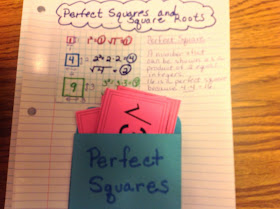 Perfect Squares and
Square Roots
1 1² = 1 √1 = 1
4 2² = 2·2 = 4
√4 = 2
9 3² = 3·3 = 9
Perfect Square
A number that
can be shown as a
product of 2 equal
integers.
16 is a perfect square
because 4·4 = 16
√3
Perfect
Squares